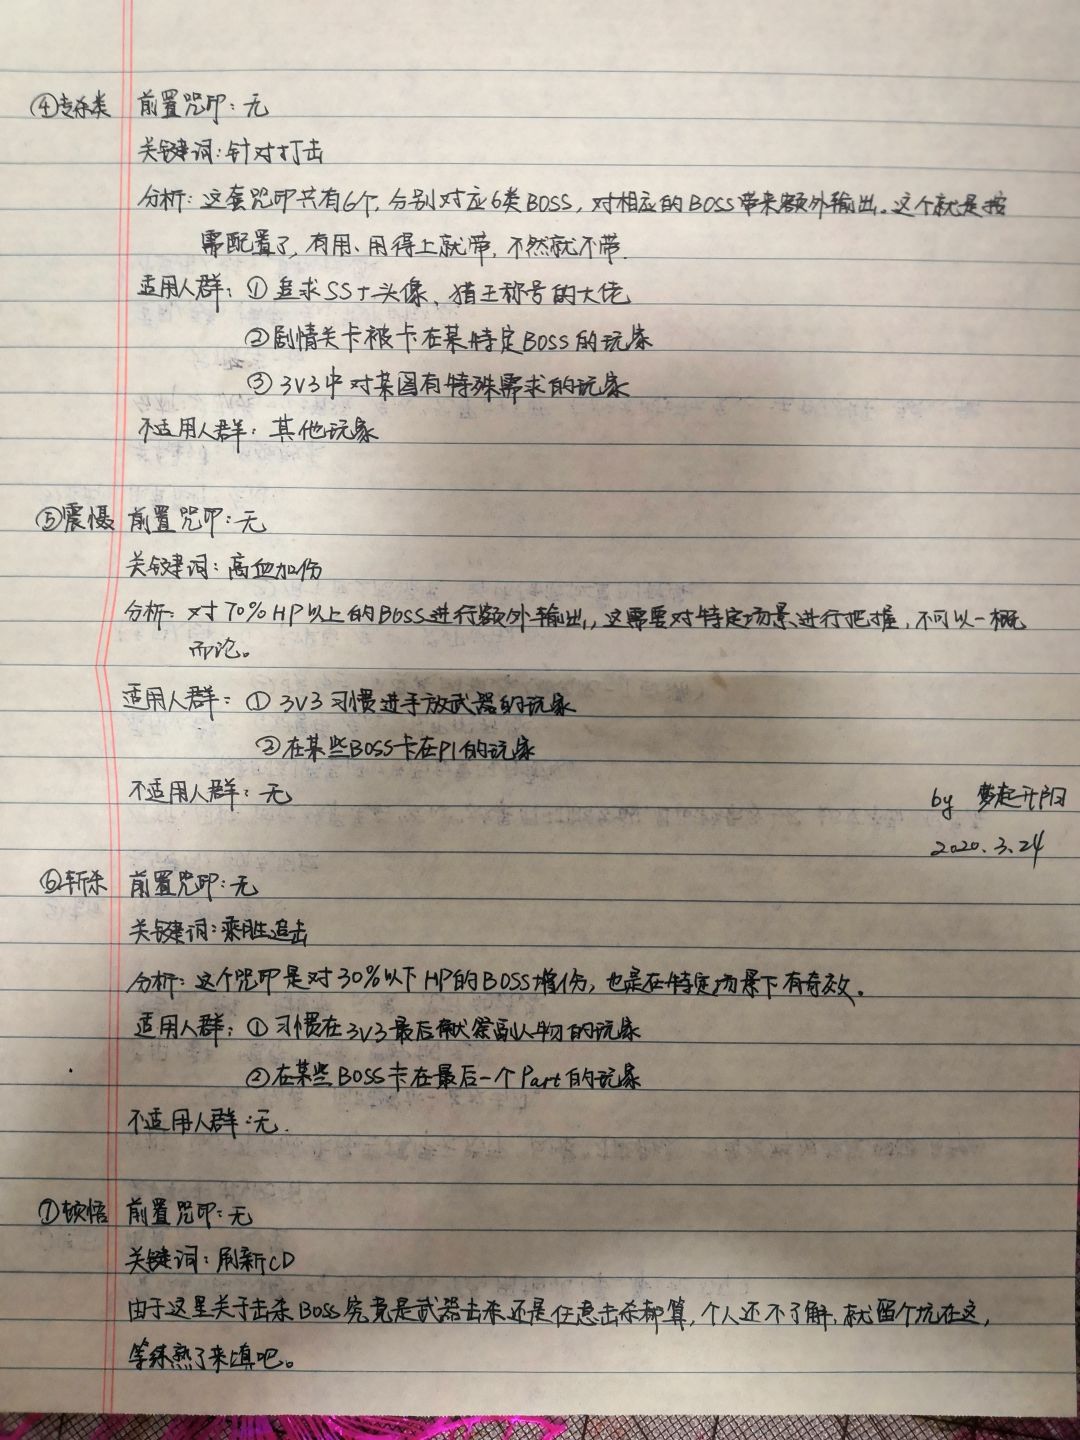 ④专杀类 前置咒印：无
关键词：针对打击
分析：这套咒印共有6个，分别对应6类BOSS，对相应的BOSS带来额外输出。这个就是按
需配置了，有用、用得上就带，不然就不带.
适用人群：①追求SS+头像、猎王称号的大佬
②剧情关卡被卡在某特定BOSS的玩家
③3V3中对某图有特殊需求的玩家
不适用人群：其他玩家
⑤震慑 前置咒印：无
关键词：高血加伤
分析：对70%HP以上的BOSS进行额外输出，这需要对特定场景进行把握，不可以一概
而论。
适用人群：①3V3习惯进手放武器的玩家
②在某些BOSS卡在P1的玩家
不适用人群：无
by 梦起开阳
2020.3.24
⑥斩杀 前置咒印：无
关键词：乘胜追击
分析：这个咒印是对30%以下HP的BOSS增伤，也是在特定场景下有奇效。
适用人群：①习惯在3V3最后献祭副人物的玩家
②在某些BOSS卡在最后一个Part的玩家
不适用人群：无.
⑦顿悟 前置咒印：无
关键词：刷新CD
由于这里关于击杀BOSS究竟是武器击杀还是任意击杀都算，个人还不了解，就留个坑在这，
等练熟了来填吧。